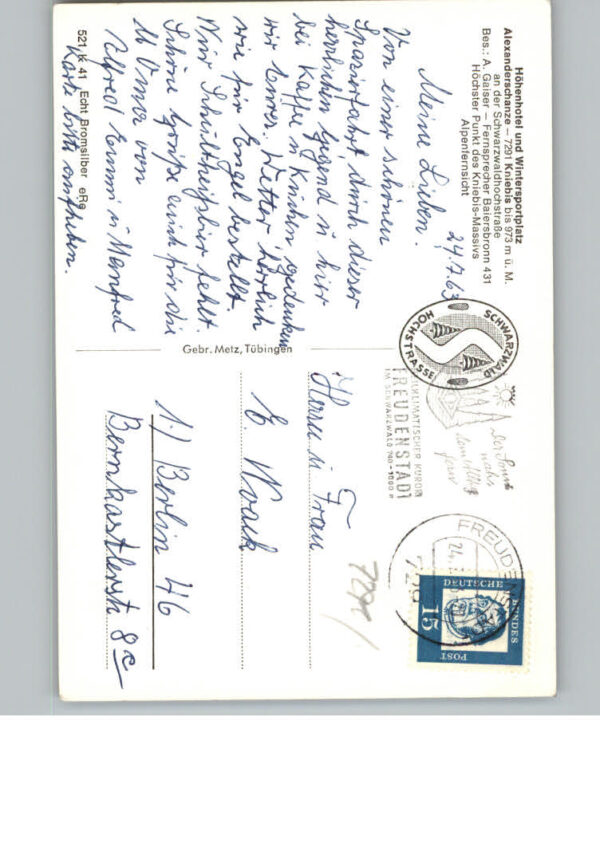 Höhenhotel und Wintersportplatz
Alexanderschanze – 7291 Kniebis bis 973 m ü. M.
an der Schwarzwaldhochstraße
Bes.: A. Gaiser – Fernsprecher Baiersbronn 431
Höchster Punkt des Kniebis-Massivs
Alpenfernsicht
24.7.63
Meine Lieben.
Von einer schönen
Spazierfahrt, durch dieser
herrlichen Gegend u hier
bei Kaffe u Kuchen gedenken
wir Eurer. Wetter herrlich
wie für Engel bestellt.
Nur Schultheissbier fehlt.
Schöne Grüße auch für die
Oma von
Alfred Emmi u Manfred
Karte bitte aufheben.
521 k 41 Echt Bromsilber eRe
Gebr. Metz, Tübingen
SCHWARZWALD
HOCHSTRASSE
Der Sonne
nah
dem Alltag
fern
HEILKLIMATISCHER KURORT
FREUDENSTADT
IM SCHWARZWALD 740-1000 m
FREUDENSTADT
24.
729
DEUTSCHE BUNDESPOST
15
Herrn u Frau
E. Noack
1.) Berlin 46
Bernkastlerstr 8c